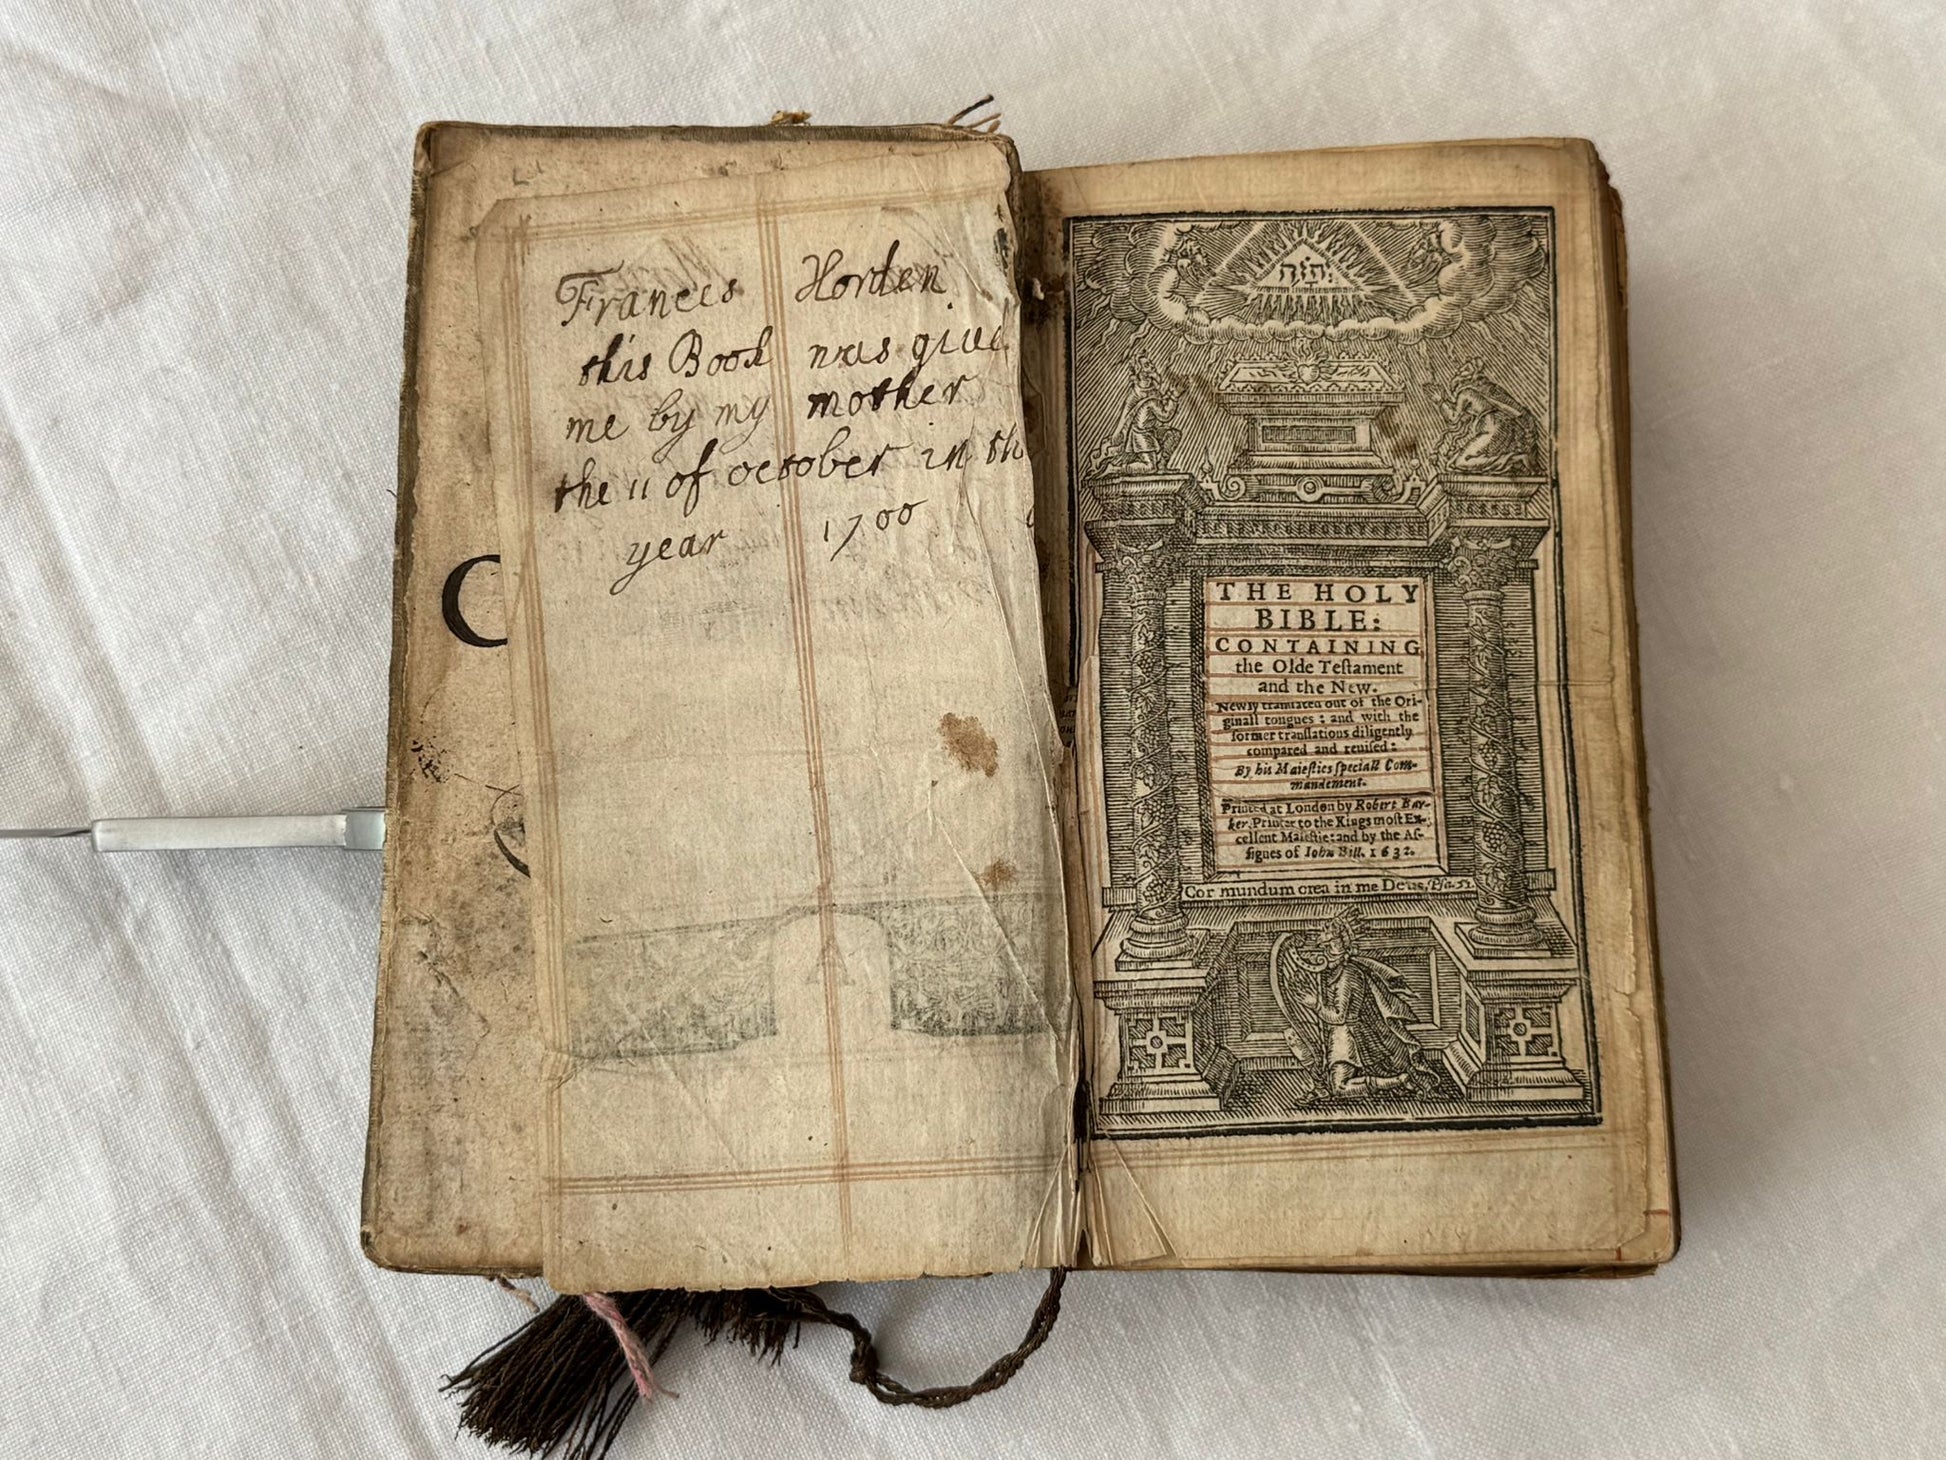 Frances Horden
this Book was give
me by my mother
the 11 of october in th
year 1700
C
A
יהוה
THE HOLY
BIBLE:
CONTAINING
the Olde Teſtament
and the New.
Newly tranſlated out of the Ori-
ginall tongues: and with the
former tranſlations diligently
compared and reuiſed:
By his Maieſties ſpeciall Com-
mandement.
Printed at London by Robert Bar-
ker, Printer to the Kings moſt Ex-
cellent Maieſtie: and by the Aſ-
ſignes of Iohn Bill. 1632.
Cor mundum crea in me Deus, Pſa. 51